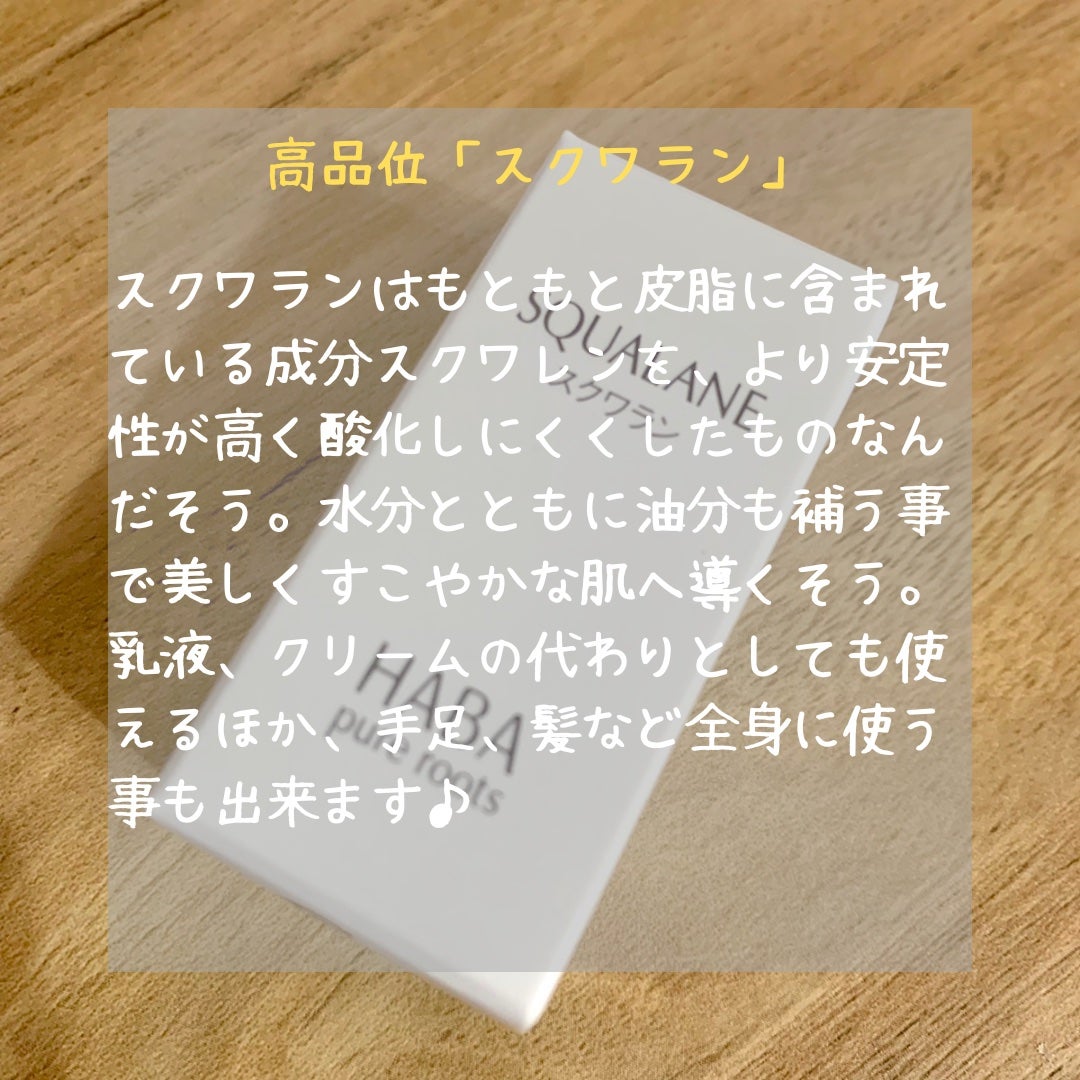 高品位「スクワラン」
スクワランはもともと皮脂に含まれ
ている成分スクワレンを、より安定
性が高く酸化しにくくしたものなん
だそう。水分とともに油分も補う事
で美しくすこやかな肌へ導くそう。
乳液、クリームの代わりとしても使
えるほか、手足、髪など全身に使う
事も出来ます♪
SQUALANE
スクワラン
HABA
pure roots